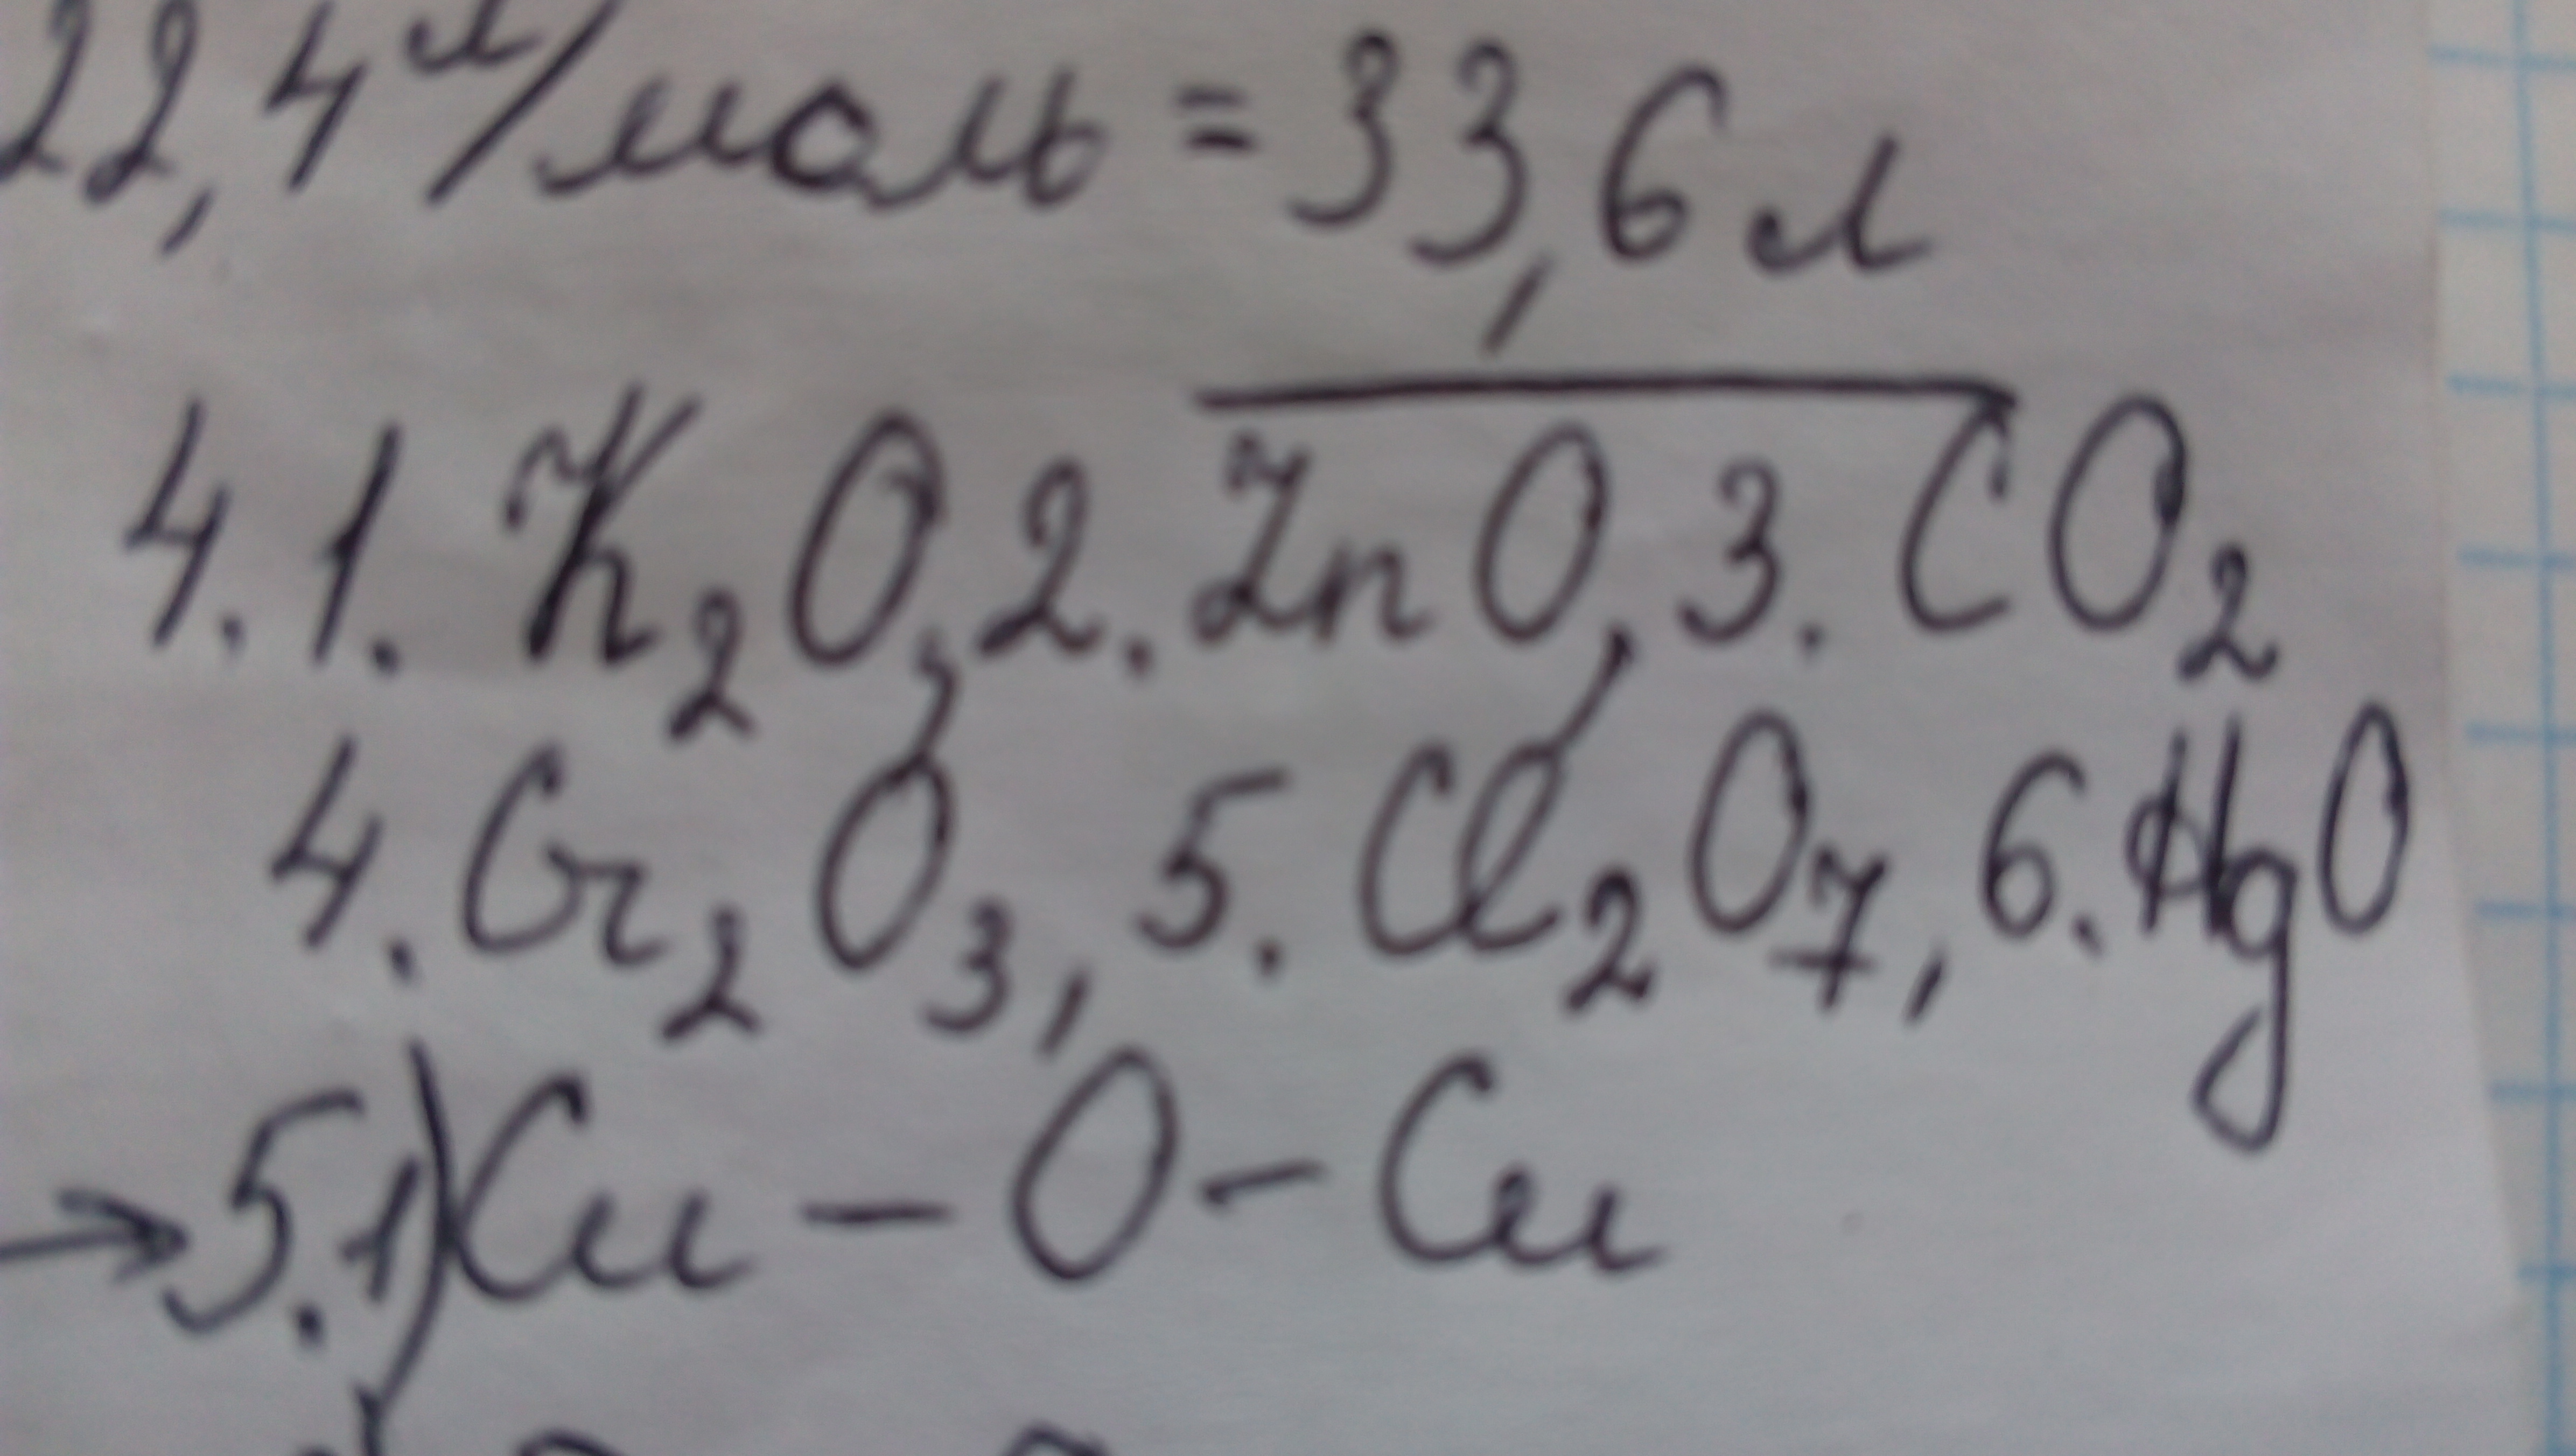 22,4 л/моль = 33,6 л
4. 1. K₂O, 2. ZnO, 3. CO₂
4. Cr₂O₃, 5. Cl₂O₇, 6. HgO
→ 5. 1) Cu – O – Cu